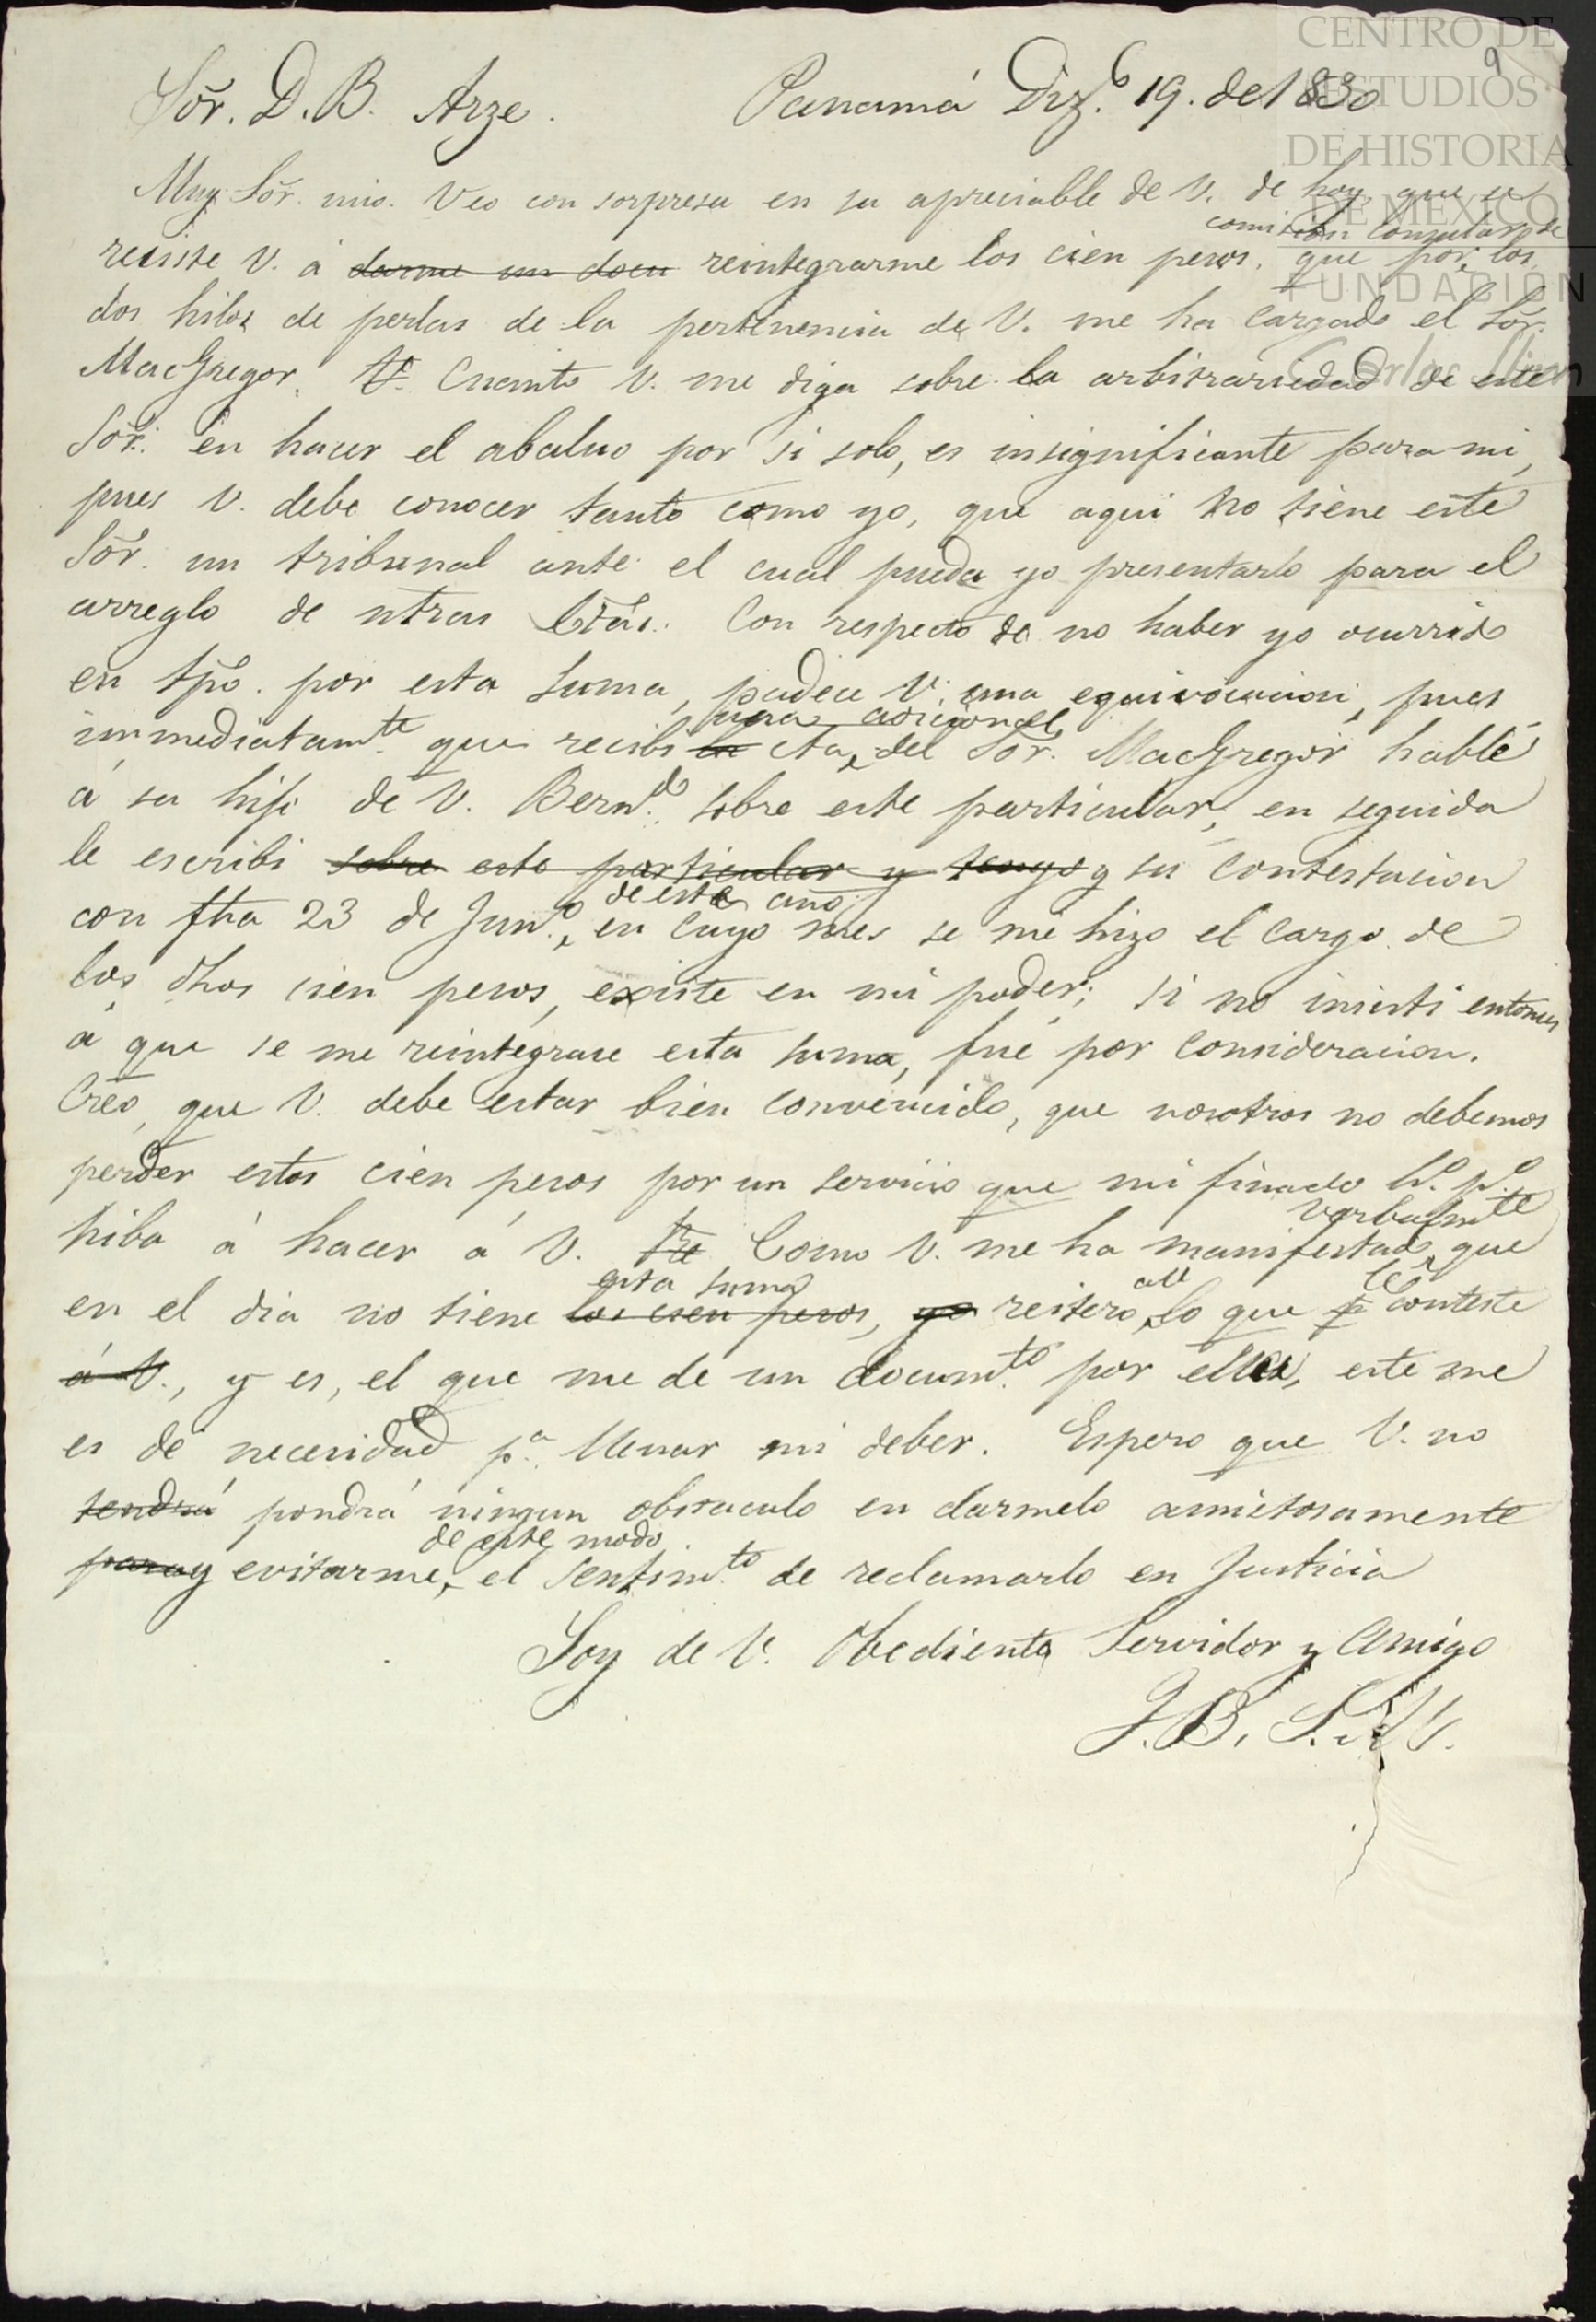 CENTRO DE
ESTUDIOS
DE HISTORIA
DE MÉXICO
FUNDACIÓN
Carlos Slim
9
Sōr. D. B. Arze. Panamá Diz.e 19. de 1830
Muy Sōr. mio. Veo con sorpresa en su apreciable de V. de hoy, que se
comision consular de
resiste V. á darme un docu reintegrarme los cien pesos, que por los
dos hilos de perlas de la pertenencia de V. me ha cargado el Sōr.
MacGregor. Cuanto V. me diga sobre la arbitrariedad de este
Sōr. en hacer el abaluo por si solo, es insignificante para mi,
pues V. debe conocer tanto como yo, que aqui no tiene este
Sōr. un tribunal ante el cual pueda yo presentarlo para el
arreglo de ntras Ctas. Con respecto de no haber yo ocurrido
en tpō. por esta suma, padece V. una equivocacion, pues
una adicional
immediatamte que recibi la cta, del Sōr. MacGregor hablé
á su hijo de V. Bern.do sobre este particular, en seguida
le escribi sobre este particular y tengo y su contestacion
de este año
con fha 23 de Jun.o, en cuyo mes se me hizo el cargo de
los dhos cien pesos, existe en mi poder; si no insisti entonces
á que se me reintegrase esta suma, fué por consideracion.
Creo, que V. debe estar bien convencido, que nosotros no debemos
perder estos cien pesos por un servicio que mi finado
verbalmte
hiba á hacer á V. Como V. me ha manifestado que
esta suma all le
en el dia no tiene los cien pesos, yo reitero lo que conteste
á V., y es, el que me de un documto por ella, este me
es de necesidad p.a llenar mi deber. Espero que V. no
tendrá pondrá ningun obstaculo en darmelo amistosamente
de este modo
para y evitarme, el sentimto de reclamarlo en Justicia
Soy de V. Obediente Servidor y Amigo
J. B.